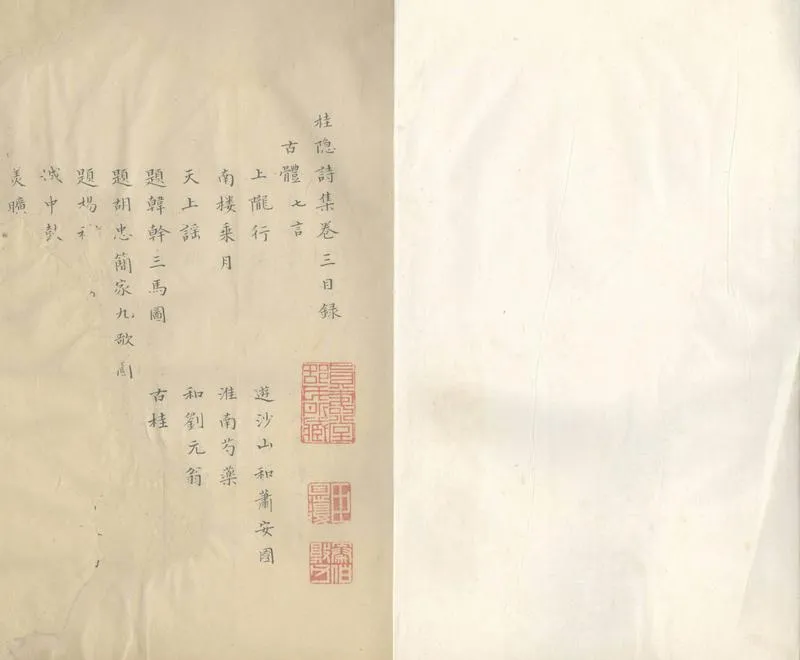 桂隐詩集卷三目録
古體七言
上隴行
遊沙山和蕭安國
南楼乗月
淮南芍藥
天上謡
和劉元翁
題韓幹三馬圖
古桂
題胡忠簡家九歌圖
題楊
城中鼓
美曠